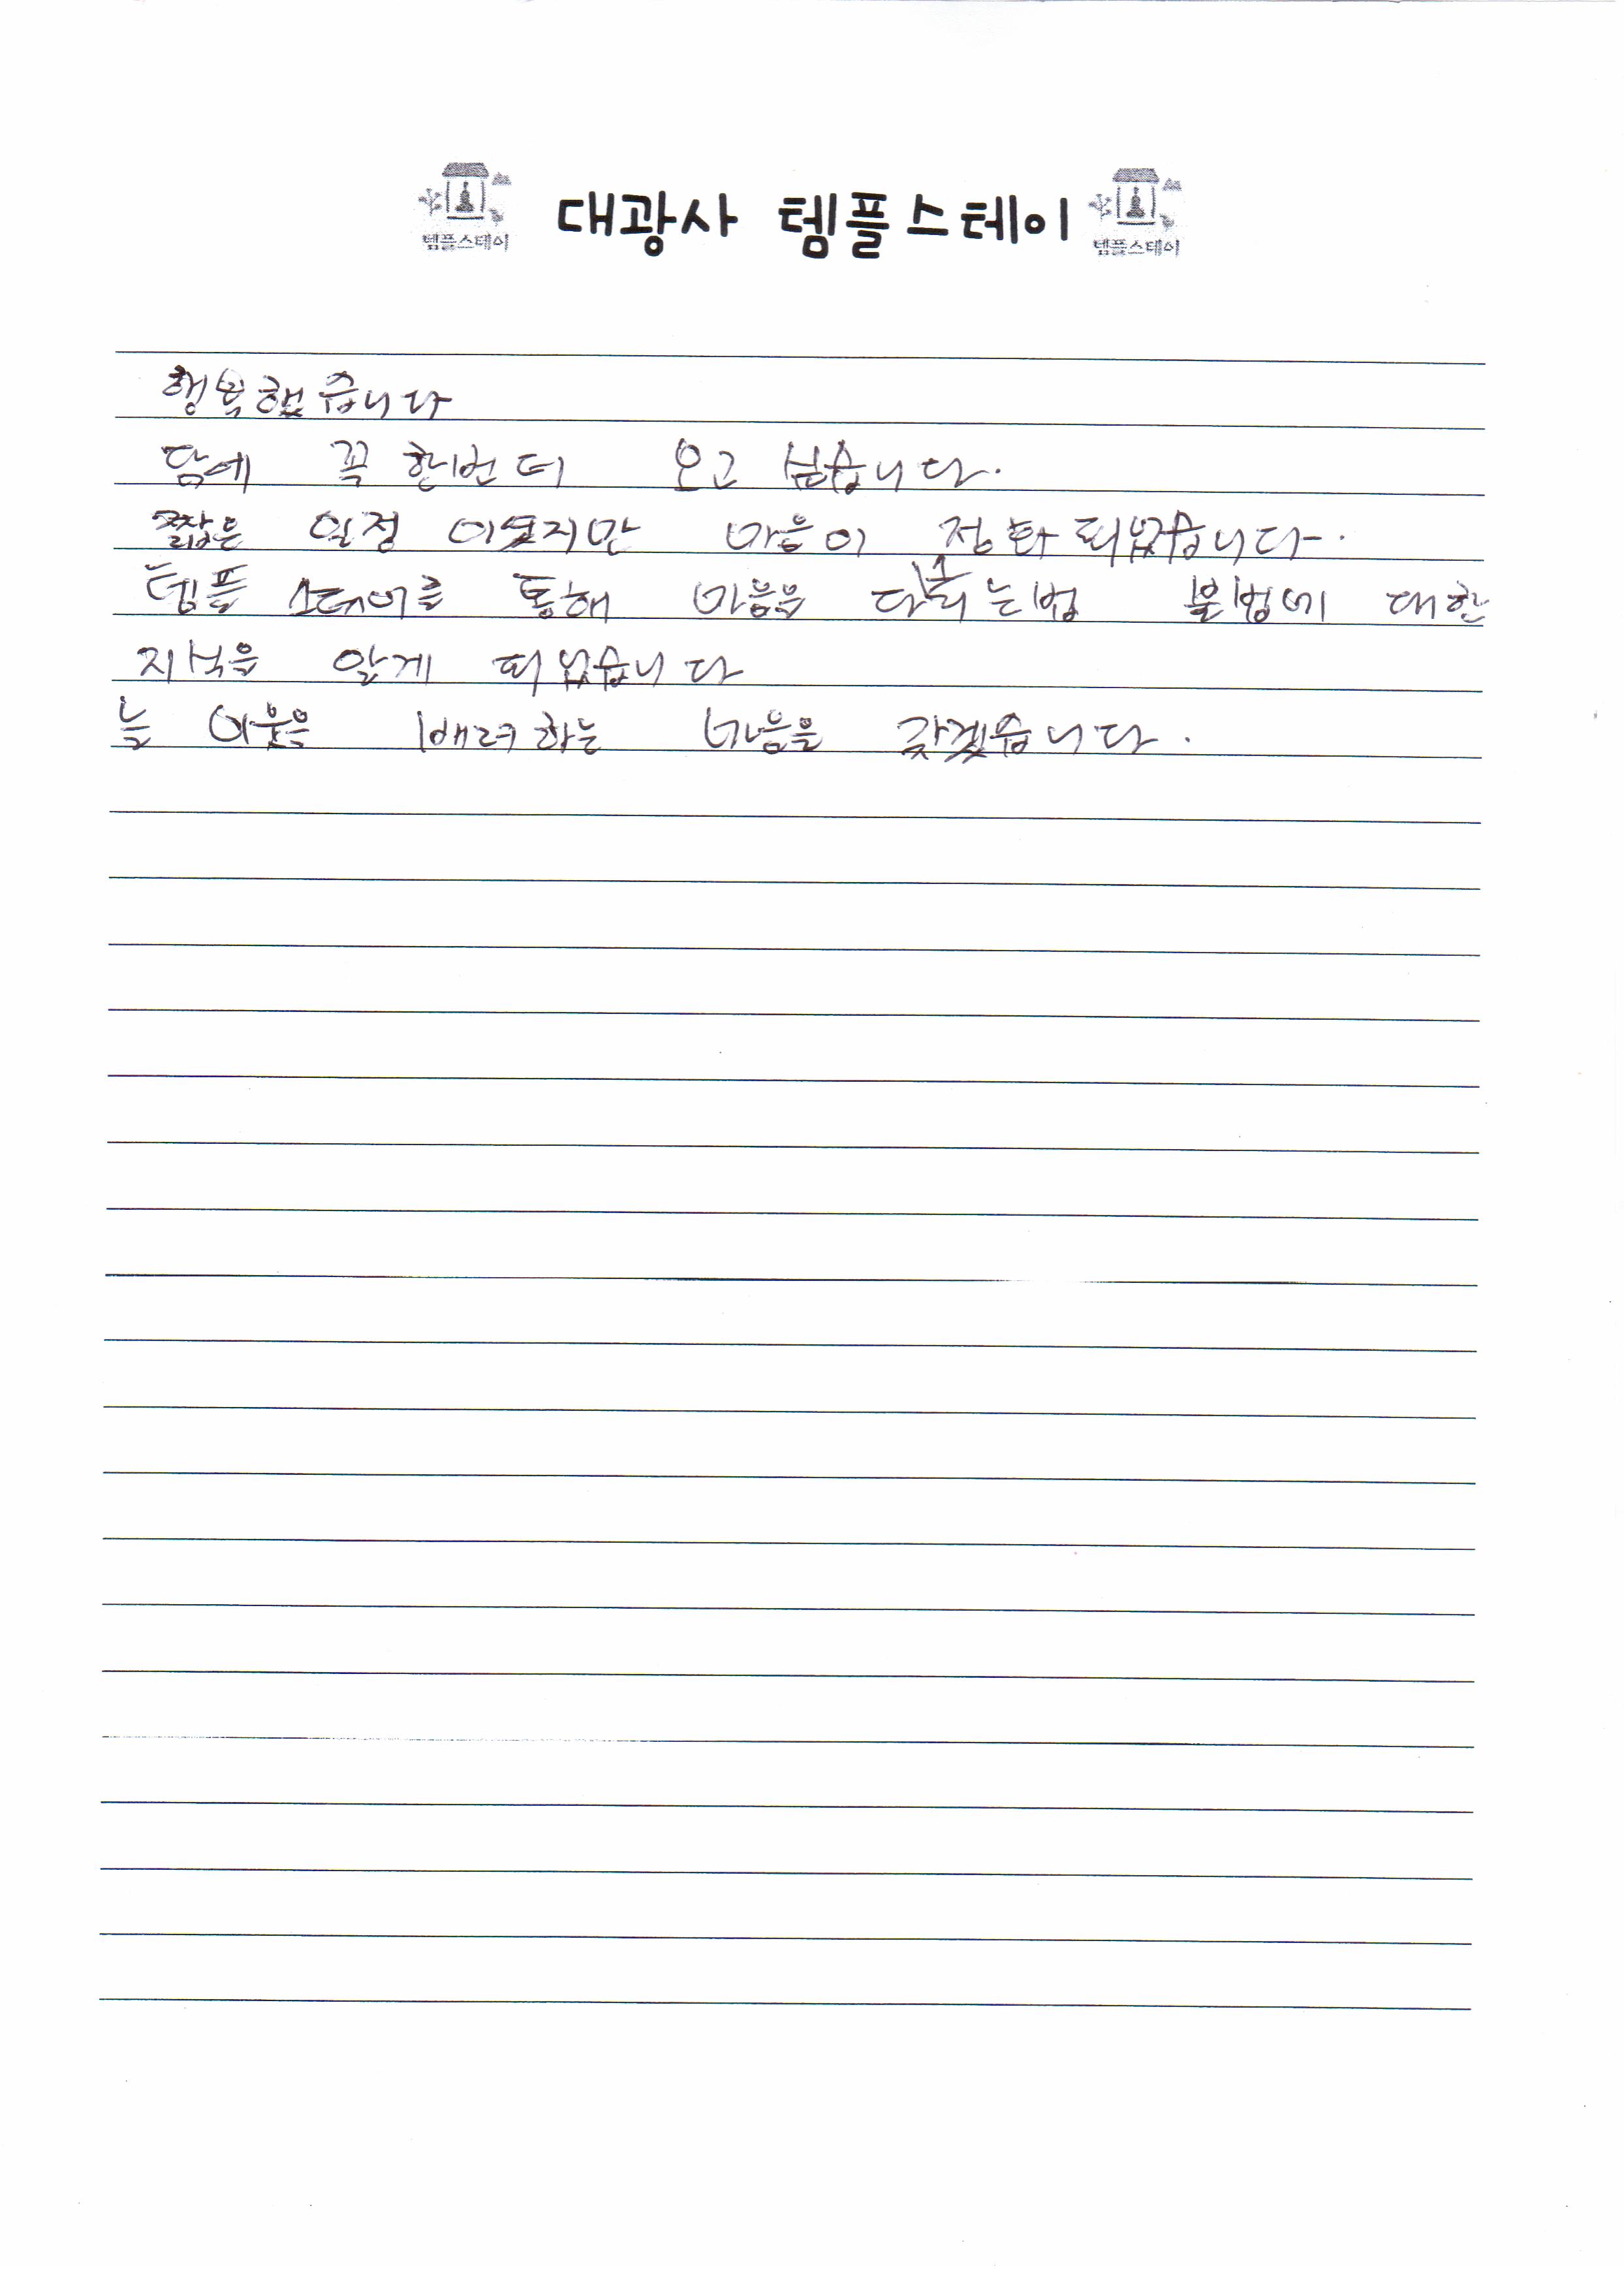 대광사 템플스테이
템플스테이 템플스테이
행복했습니다
담에 꼭 한번더 오고 싶습니다.
짧은 일정 이였지만 마음이 정화 되었습니다.
템플 스테이를 통해 마음을 다스리는법 불법에 대한
지식을 알게 되었습니다
늘 이웃은 배려하는 마음을 갖겠습니다.